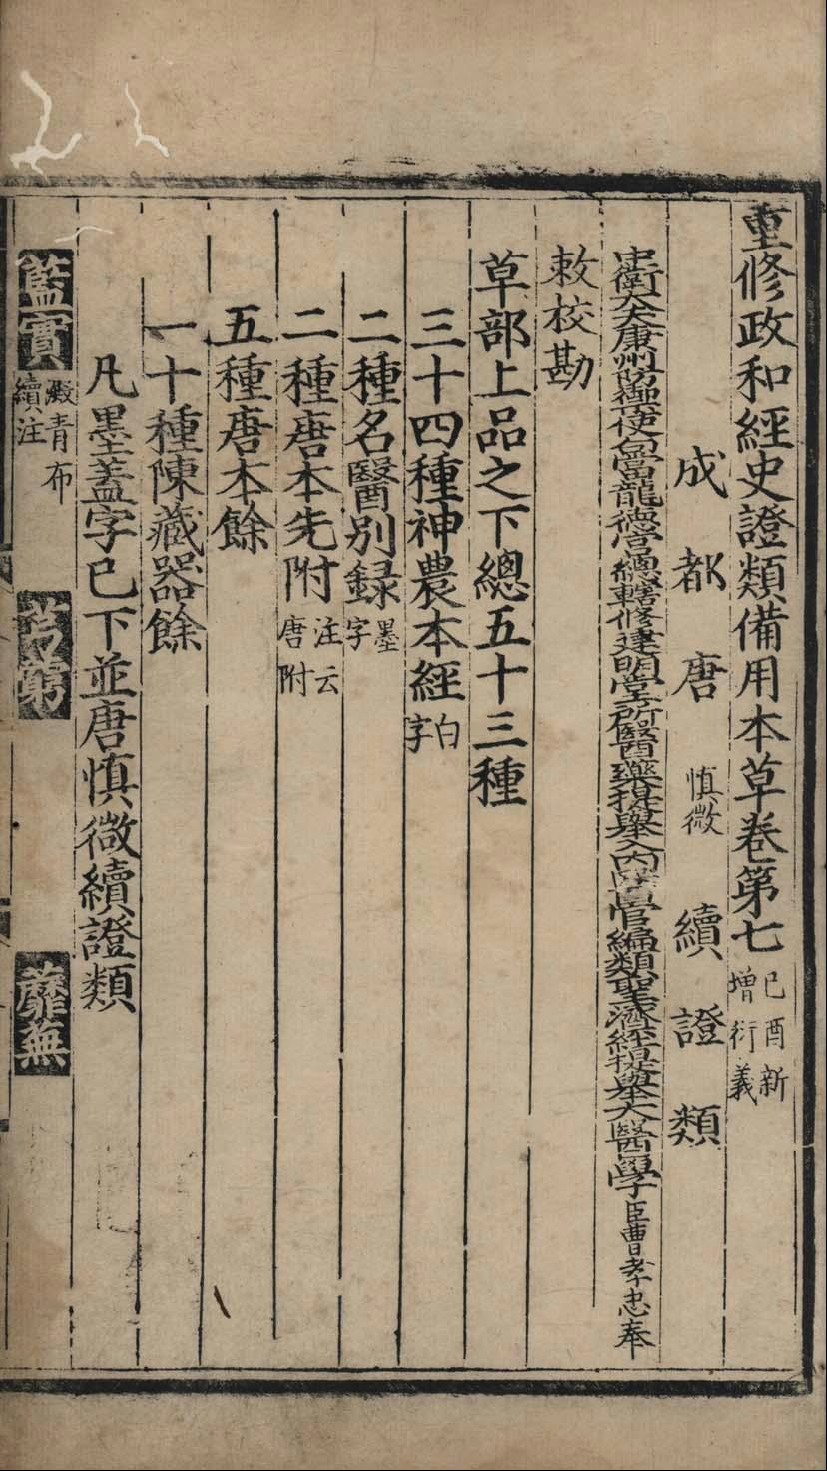 重修政和經史證類備用本草卷第七 己酉新增衍義
成都唐慎微續證類
中衛大夫康州防禦使句當龍德宮總轄修建明堂所醫藥提舉入內醫官編類聖濟經提舉大醫學臣曹孝忠奉
敕校勘
草部上品之下總五十三種
三十四種神農本經白字
二種名醫別録墨字
二種唐本先附注云唐附
五種唐本餘
一十種陳藏器餘
凡墨蓋字已下並唐慎微續證類
藍實 殿青布續注 芎藭 蘼蕪